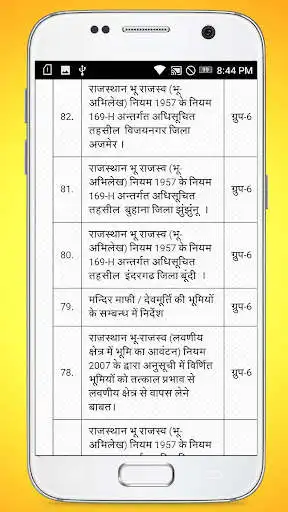 8:44 PM
82.
राजस्थान भू राजस्व (भू-
अभिलेख) नियम 1957 के नियम
169-H अन्तर्गत अधिसूचित
तहसील विजयनगर जिला
अजमेर ।
ग्रुप-6
81.
राजस्थान भू राजस्व (भू-
अभिलेख) नियम 1957 के नियम
169-H अन्तर्गत अधिसूचित
तहसील बुहाना जिला झुंझुंनू ।
ग्रुप-6
80.
राजस्थान भू राजस्व (भू-
अभिलेख) नियम 1957 के नियम
169-H अन्तर्गत अधिसूचित
तहसील इंदरगढ जिला बूंदी ।
ग्रुप-6
79.
मन्दिर माफी / देवमूर्ति की भूमियों
के सम्बन्ध में निर्देश
ग्रुप-6
78.
राजस्थान भू-राजस्व (लवणीय
क्षेत्र में भूमि का आवंटन) नियम
2007 के द्वारा अनुसूची में विर्णित
भूमियों को तत्काल प्रभाव से
लवणीय क्षेत्र से वापस लेने
बाबत।
ग्रुप-6
राजस्थान भू राजस्व (भू-
अभिलेख) नियम 1957 के नियम